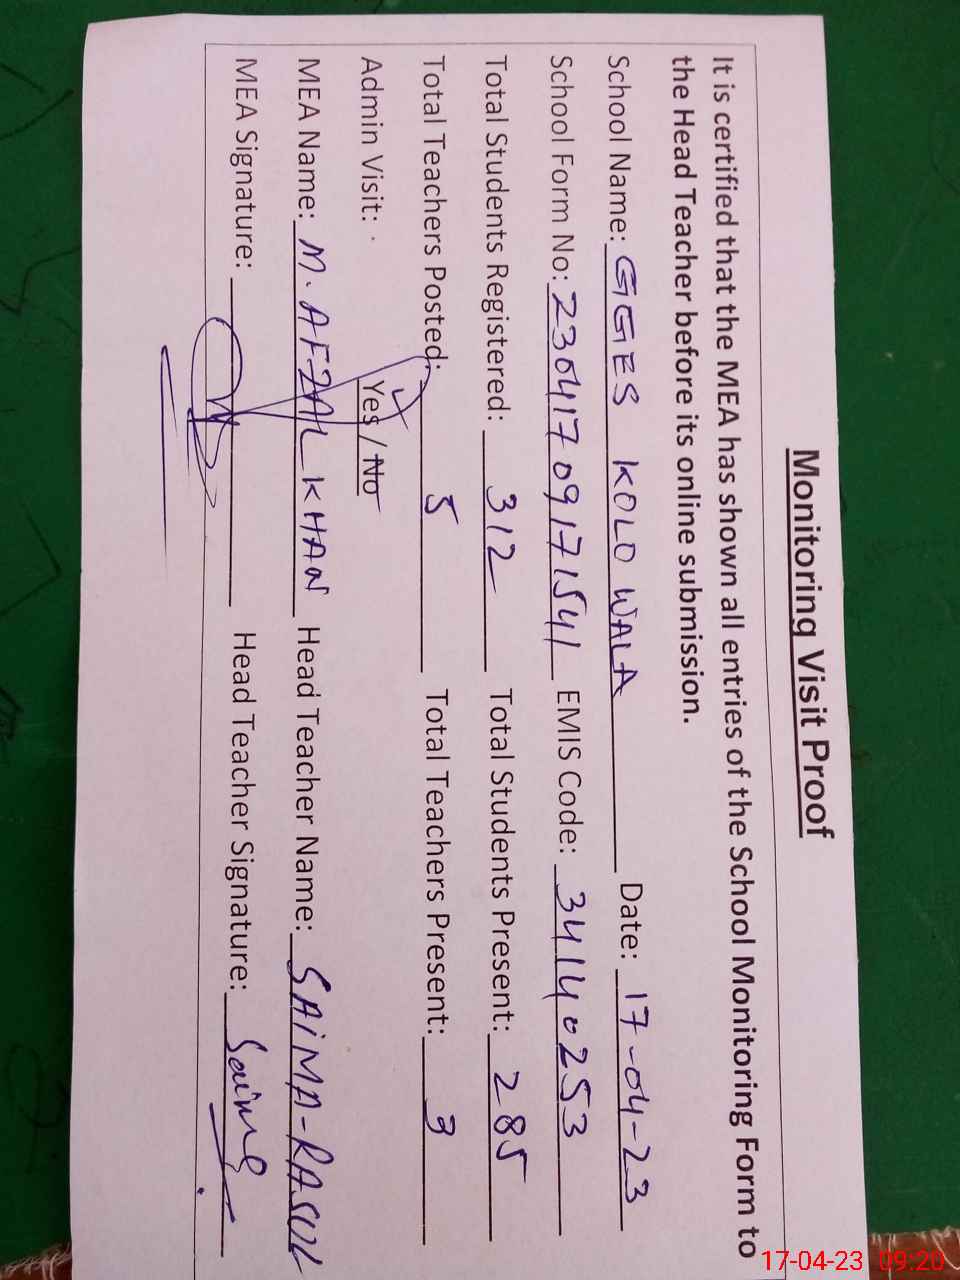 Monitoring Visit Proof
It is certified that the MEA has shown all entries of the School Monitoring Form to
the Head Teacher before its online submission.
School Name: GGES KOLO WALA Date: 17-04-23
School Form No: 230417 0917 1541 EMIS Code: 34140253
Total Students Registered: 312 Total Students Present: 285
Total Teachers Posted: 5 Total Teachers Present: 3
Admin Visit: Yes / No
MEA Name: M. AFZAL KHAN Head Teacher Name: SAIMA-RASUL
MEA Signature: Head Teacher Signature: Saima
17-04-23 09:20